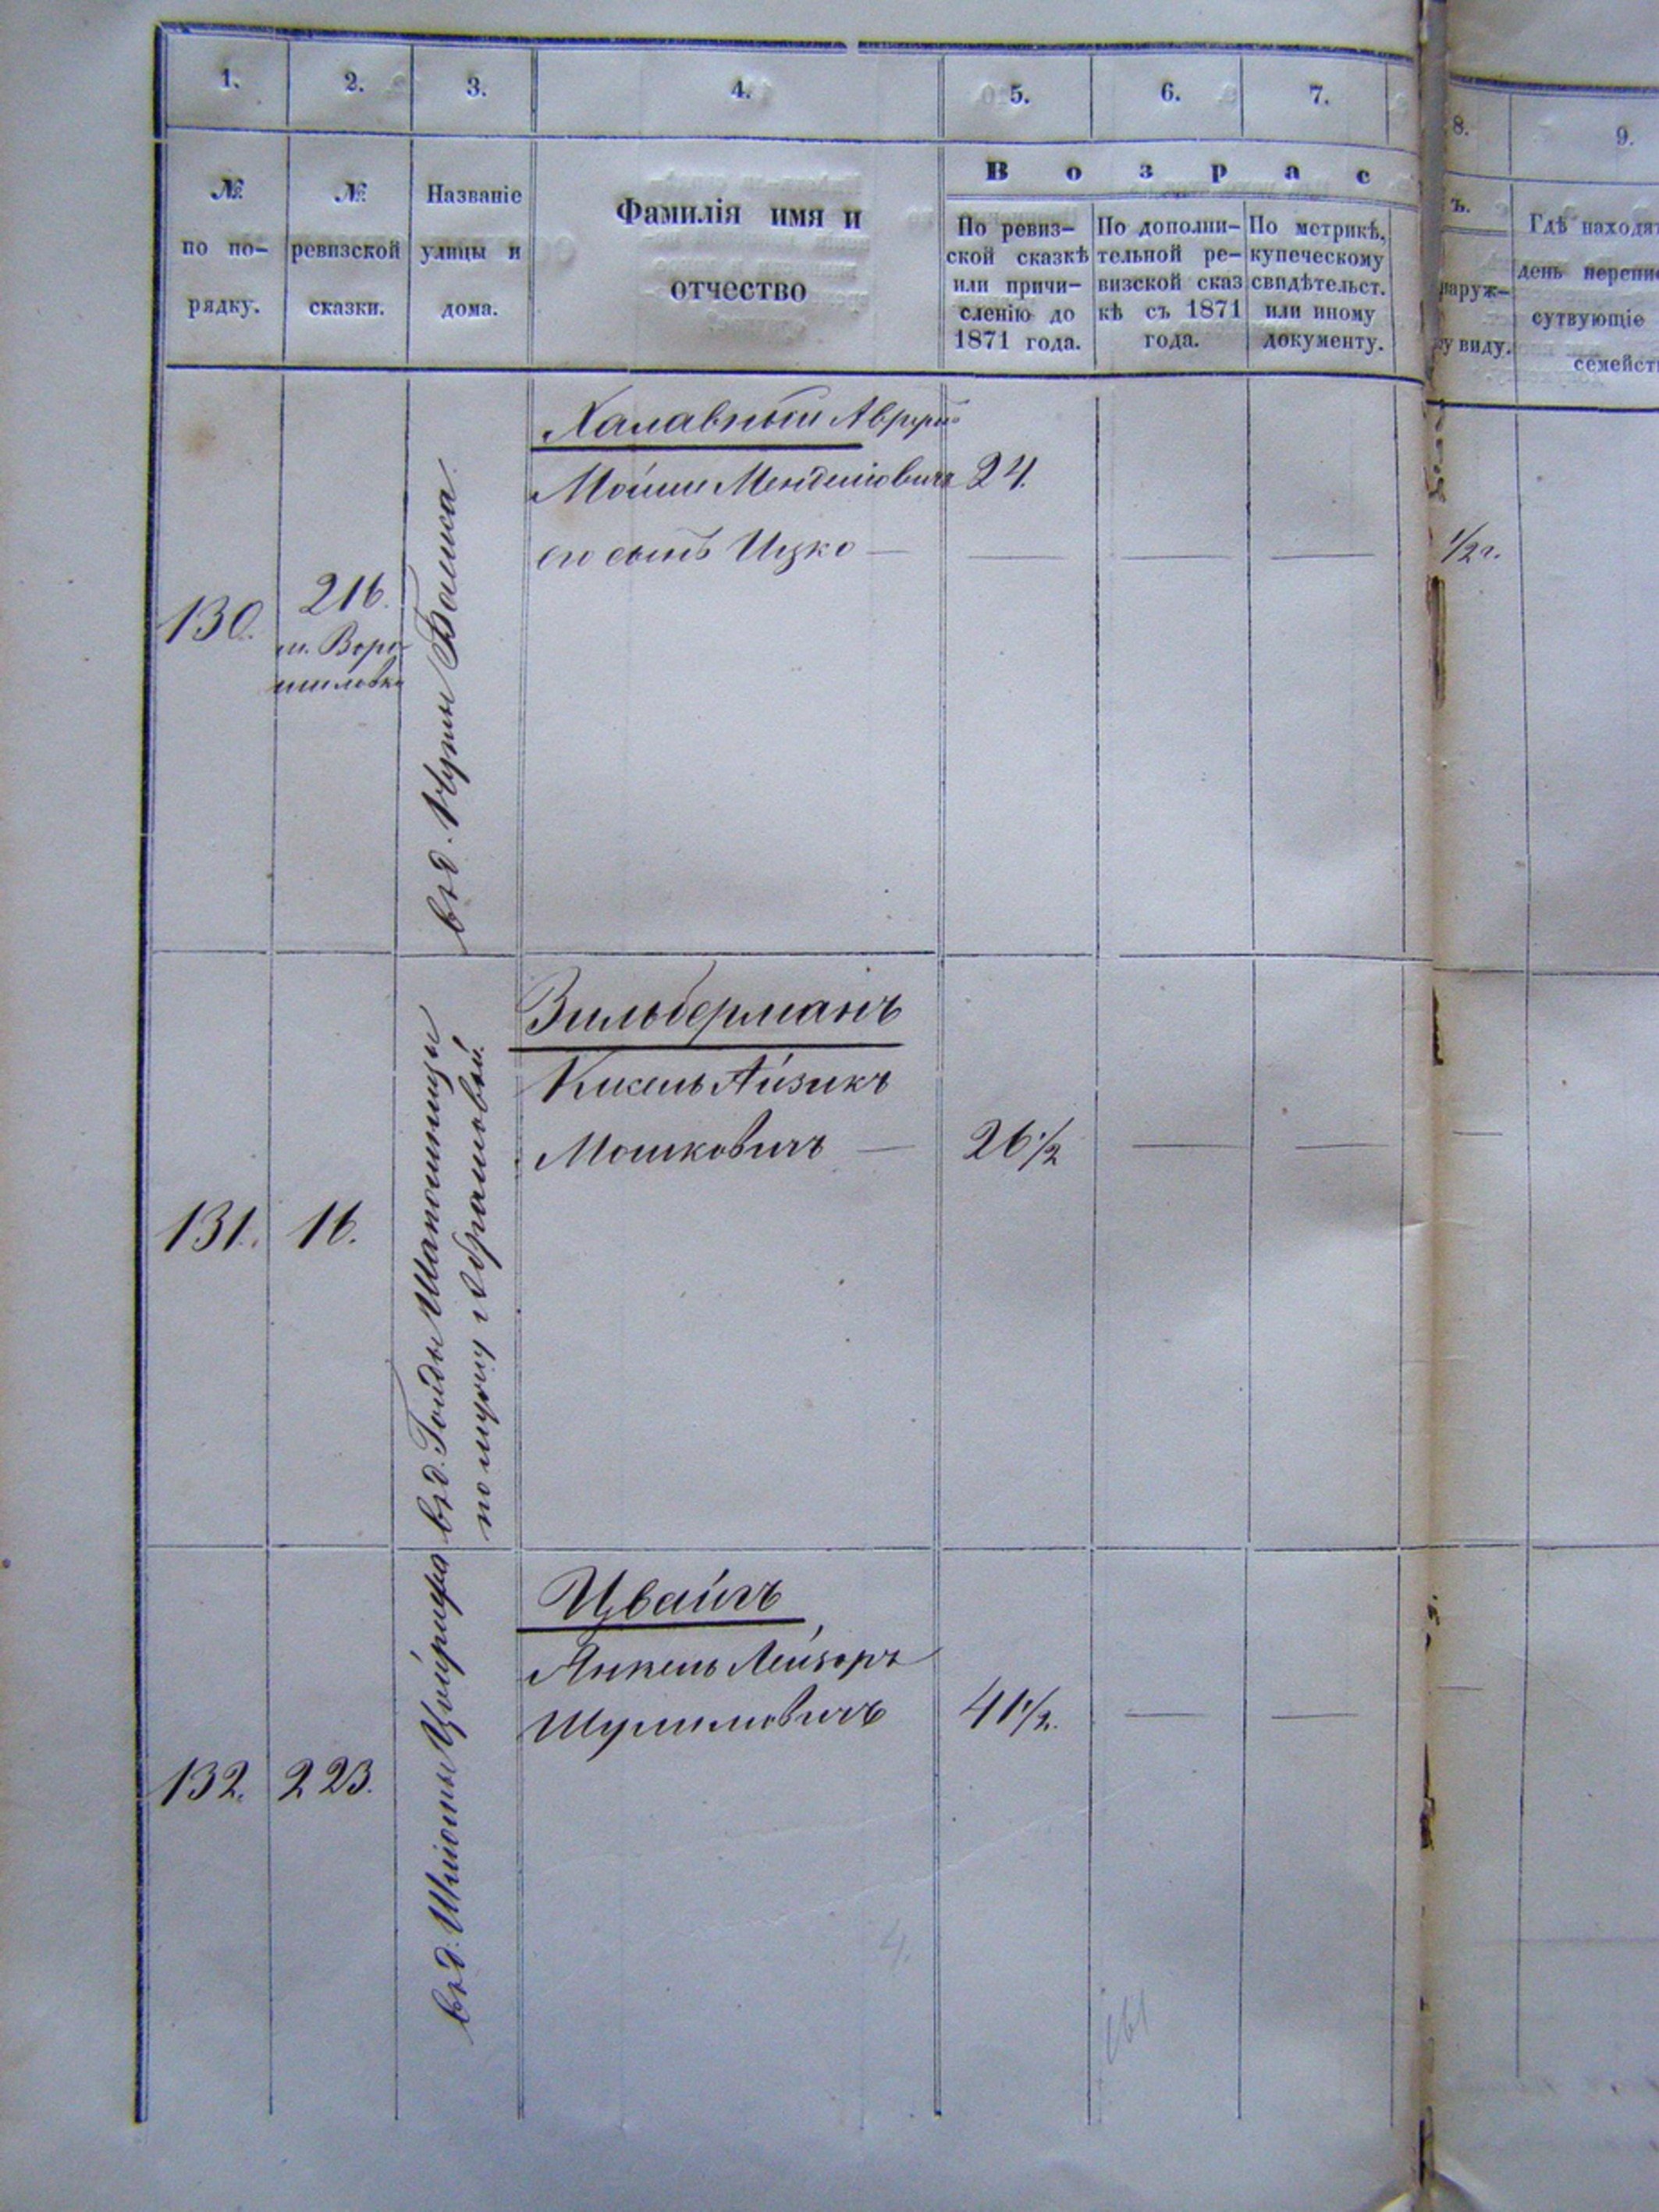 1.
2.
3.
4.
5.
6.
7.
8.
9.
№ по по-
рядку.
№ ревизской
сказки.
Названіе
улицы и
дома.
Фамилія имя и
отчество
В о з р а с
ъ.
По ревиз-
ской сказкѣ
или причи-
сленію до
1871 года.
По дополни-
тельной ре-
визской сказ
кѣ съ 1871
года.
По метрикѣ,
купеческому
свидѣтельст.
или иному
документу.
наруж-
у виду.
Гдѣ находят
день перепи
сутвующіе
семейст
130.
216.
м. Воро-
шиловка
въ д.
Халавный
Мошко Менделіовичъ
24.
его сынъ Ицко —
1/2 г.
131.
16.
въ д.
по мужу Абрамовой.
Зильберманъ
Кисель Айзикъ
Мошковичъ —
26 1/2
132.
223.
въ д. Шліомы
Цвайгъ
Янкель Лейзоръ
Шулимовичъ
41 1/2.